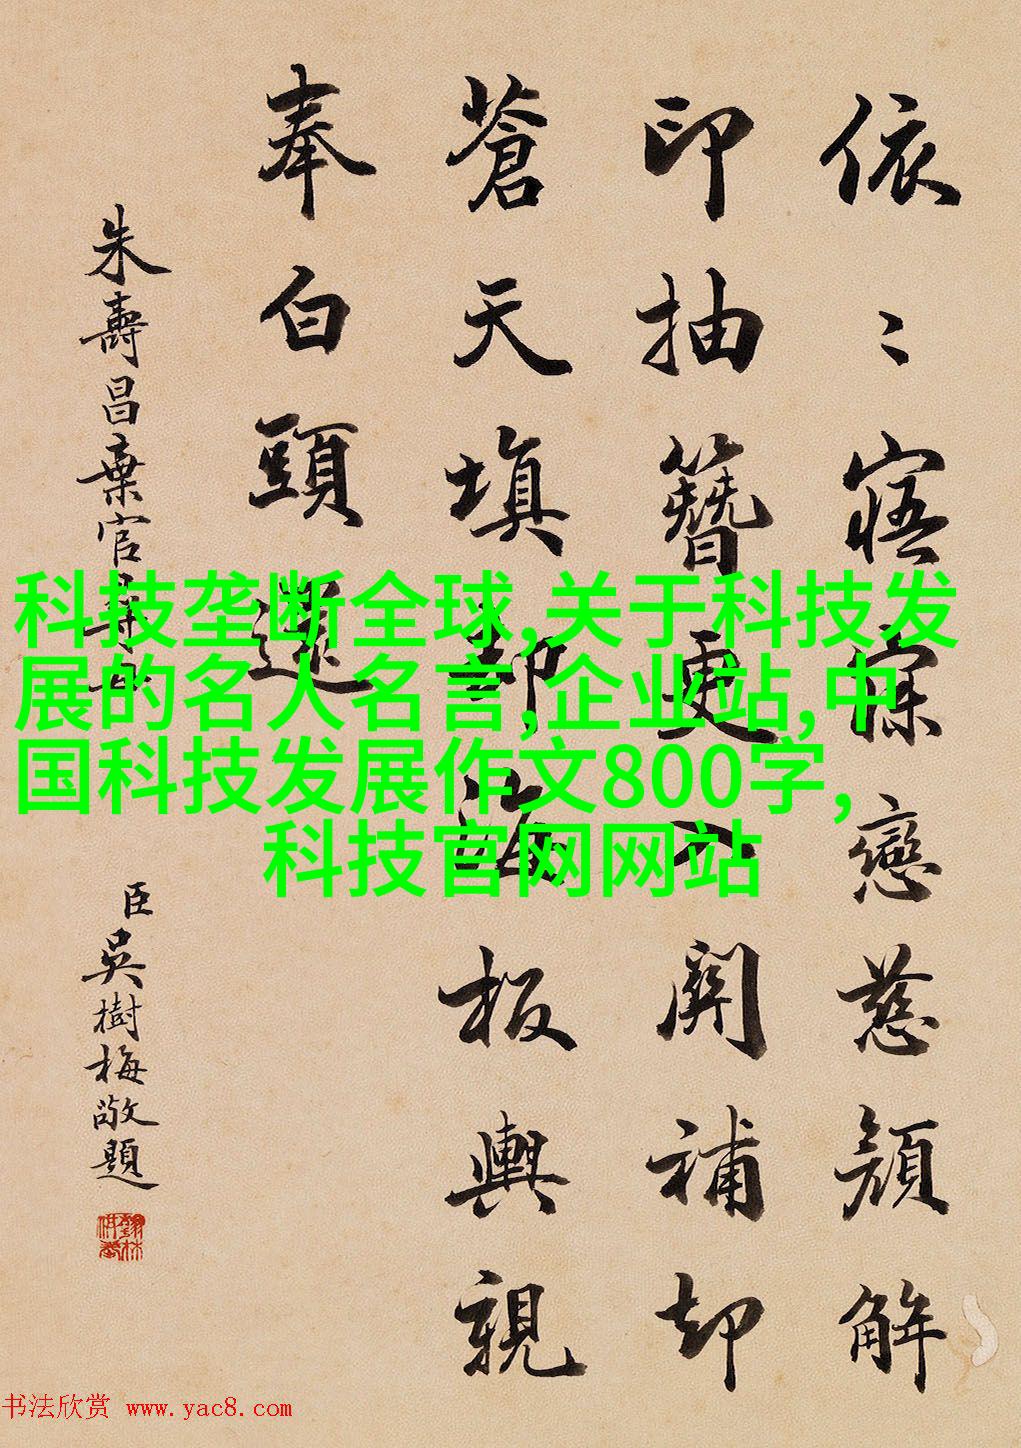 依〻寤寐戀慈顏解
印抽簪更入關補却
蒼天填却海板輿親
奉白頭還
朱壽昌棄官尋母
臣吳樹梅敬題
科技垄断全球,关于科技发
展的名人名言,企业站,中
国科技发展作文800字,
科技官网网站
书法欣赏 www.yac8.com